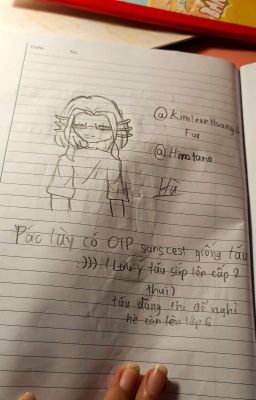 Date No.
@KimleenHoang
For
@Hinatana
Hà
Pác tày có OTP sanscest giống táu
:))) (Lưu ý táu sắp lên cấp 2
thui)
táu đang thi để nghỉ
hè còn lên lớp 6